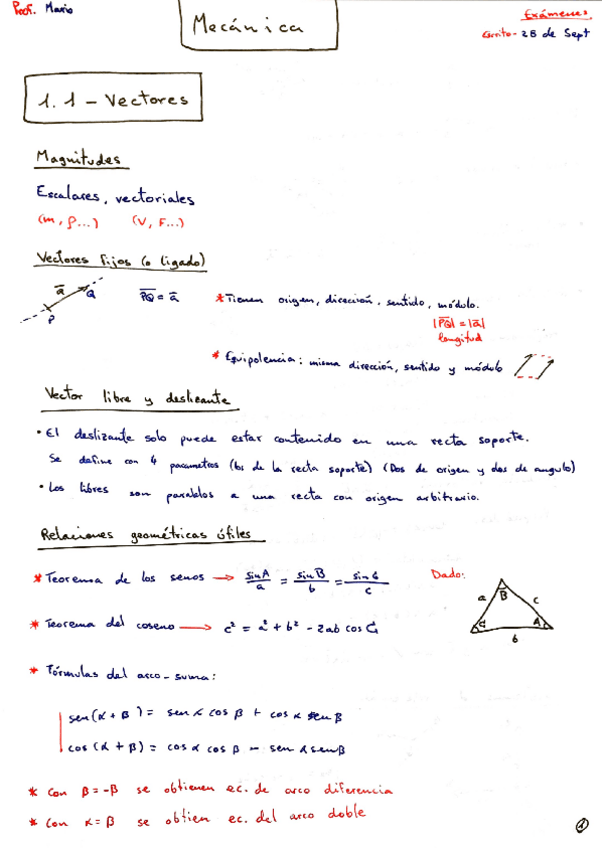 Prof. Mario
Mecánica
Exámenes
Escrito - 28 de Sept
1.1 - Vectores
Magnitudes
Escalares, vectoriales
(m, ρ...) (V, F...)
Vectores fijos (o ligado)
a Q P
PQ = a
* Tienen origen, dirección, sentido, módulo.
|PQ| = |a|
longitud
* Equipolencia: misma dirección, sentido y módulo
Vector libre y deslizante
• El deslizante solo puede estar contenido en una recta soporte.
Se define con 4 parametros (los de la recta soporte) (Dos de origen y dos de angulo)
• Los libres son paralelos a una recta con origen arbitrario.
Relaciones geométricas útiles
* Teorema de los senos → sin A / a = sin B / b = sin C / c
Dado:
a B c
C A
b
* Teorema del coseno → c² = a² + b² - 2ab cos C
* Fórmulas del arco-suma:
sen(α + β) = sen α cos β + cos α sen β
cos(α + β) = cos α cos β - sen α sen β
* Con β = -β se obtienen ec. de arco diferencia
* Con α = β se obtien ec. del arco doble
1